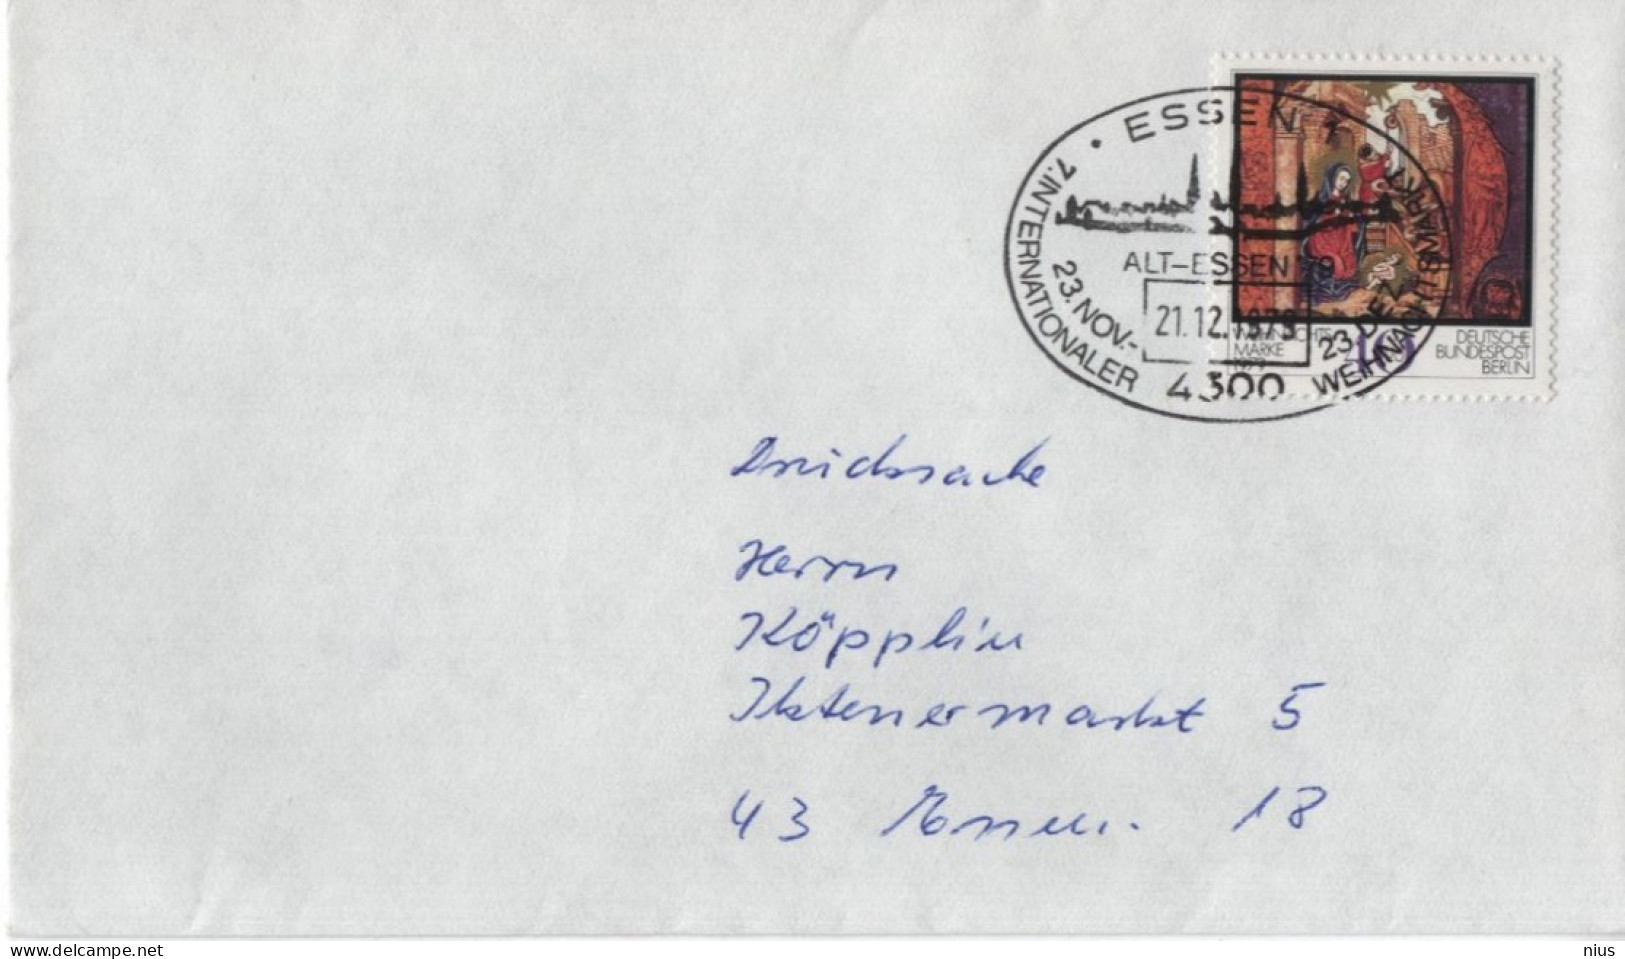 ESSEN 1
7. INTERNATIONALER WEIHNACHTSMARKT
ALT-ESSEN 79
23. NOV.- 23. DEZ.
21.12.1979
4300
WEIHNACHTS
MARKE
1979
40
DEUTSCHE
BUNDESPOST
BERLIN
Drucksache
Herrn
Köpplin
Iktenermarkt 5
43 Essen. 18
www.delcampe.net
nius